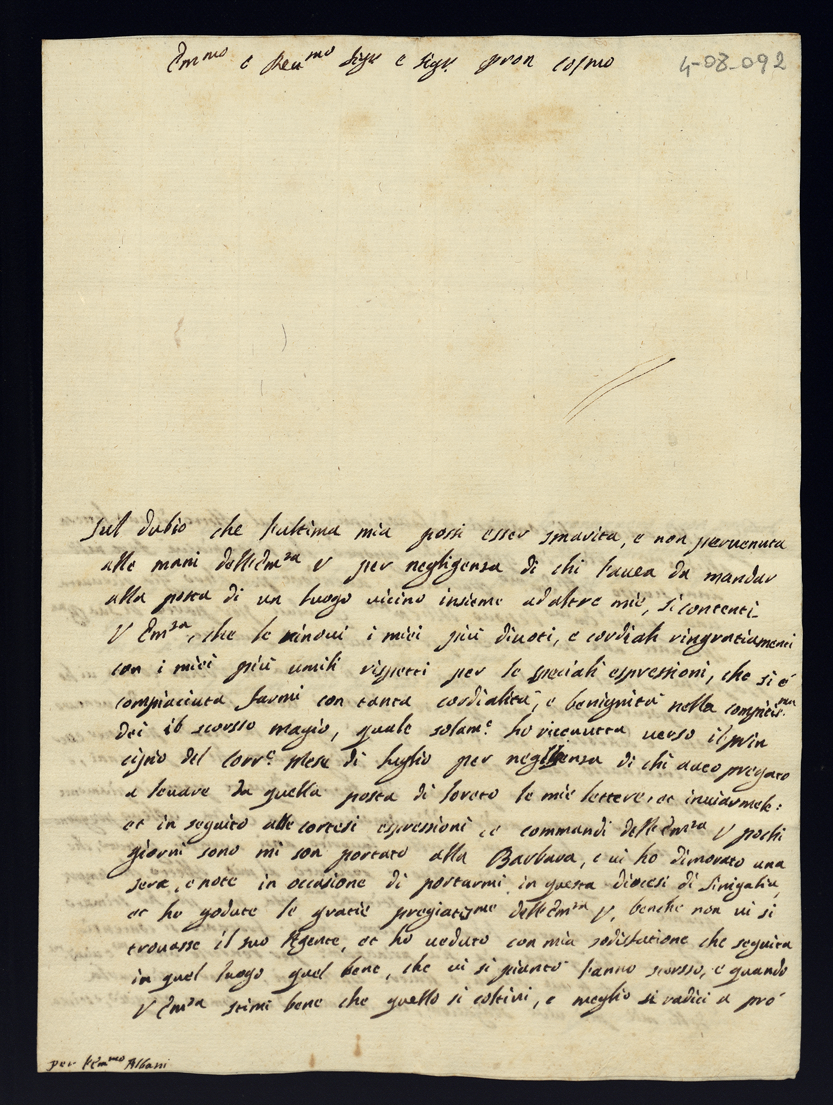 Em.mo e Reu.mo Sigr e Sigr. Pron Col.mo
4-08-092
Sul dubio che l'ultima mia possi esser smarita, e non peruenuta
alle mani dell'Em.za V per negligenza di chi l'auea da mandar
alla posta di un luogo uicino insieme ad altre mie, si contenti
V Em.za, che le rinoui i miei più diuoti, e cordiali ringratiamenti
con i miei più umili rispetti per le speciali espressioni, che si è
compiaciuta farmi con tanta cordialità, e benignità nella compitis.ma
dei 16 scorsso magio, quale solam.e ho riceuutta verso il prin
cipio del corr.e Mese di luglio per negligenza di chi aueo pregato
a leuare da quella posta di loreto le mie lettere, et inuiarmele:
et in seguito alle cortesi espressioni, e commandi dell'Em.za V pochi
giorni sono mi son portato alla Barbara, e ui ho dimorato una
sera, e note in occasione di portarmi in questa diocesi di Sinigalia,
et ho godute le gratie pregiatis.me dell'Em.za V, benche non ui si
trouasse il suo Agente, et ho ueduto con mia sodisfatione che seguita
in quel luogo quel bene, che ui si piantò l'anno scorsso, e quando
V Em.za stimi bene che quello si coltiui, e meglio si radici a pro
per l'Em.mo Albani